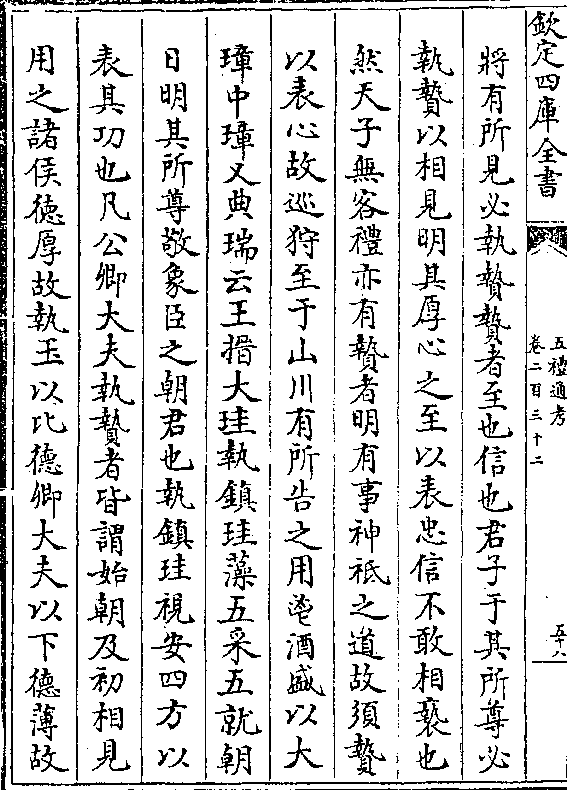 欽定四庫全書
五禮通考
卷二百三十二
五十八
將有所見必執贄贄者至也信也君子于其所尊必
執贄以相見明其厚心之至以表忠信不敢相䙝也
然天子無客禮亦有贄者明有事神祇之道故須贄
以表心故巡狩至于山川有所告之用鬯酒盛以大
璋中璋又典瑞云王搢大珪執鎮珪藻五采五就朝
日明其所尊敬象臣之朝君也執鎮珪視安四方以
表其功也凡公卿大夫執贄者皆謂始朝及初相見
用之諸侯徳厚故執玉以比徳卿大夫以下徳薄故